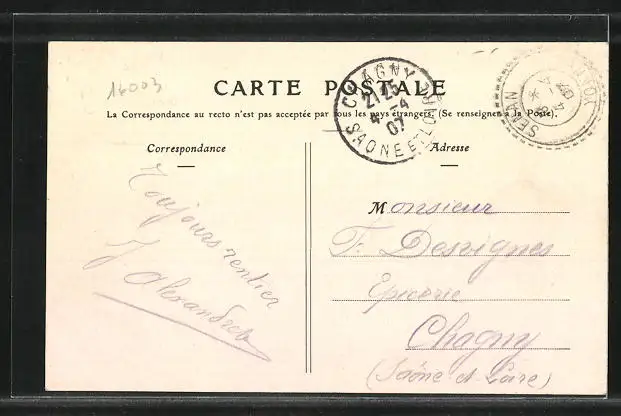 16003
CARTE POSTALE
La Correspondance au recto n'est pas acceptée par tous les pays étrangers. (Se renseigner à la Poste).
CHAGNY
21 25
4 -4
07
SAONE-ET-LOIRE
SENAN
Correspondance
Adresse
Toujours rentier
J Alexandre
Monsieur
F. Desvignes
Epicerie
Chagny
(Saône et Loire)